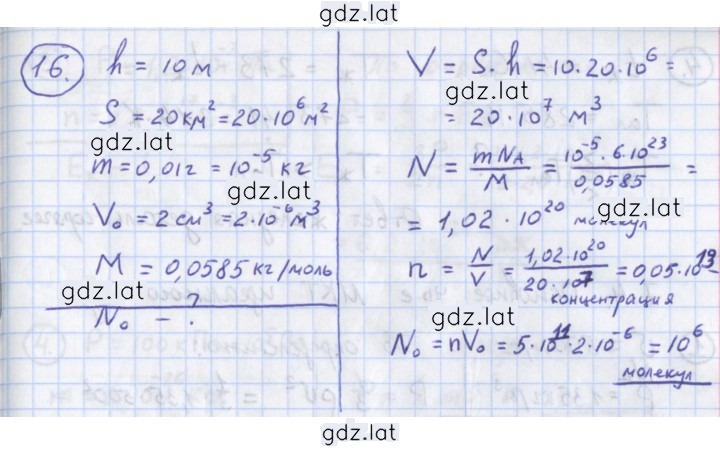 gdz.lat
16. h = 10 м
S = 20 км² = 20·10⁶ м²
gdz.lat
m = 0,01 г = 10⁻⁵ кг
gdz.lat
V₀ = 2 см³ = 2·10⁻⁶ м³
M = 0,0585 кг/моль
gdz.lat
N₀ – ?
V = S·h = 10·20·10⁶ =
gdz.lat
= 20·10⁷ м³
N = mNA/M = 10⁻⁵·6·10²³/0,0585 =
gdz.lat
= 1,02·10²⁰ молекул
n = N/V = 1,02·10²⁰/20·10⁷ = 0,05·10¹³
концентрация
gdz.lat
N₀ = nV₀ = 5·10¹¹·2·10⁻⁶ = 10⁶
молекул
gdz.lat